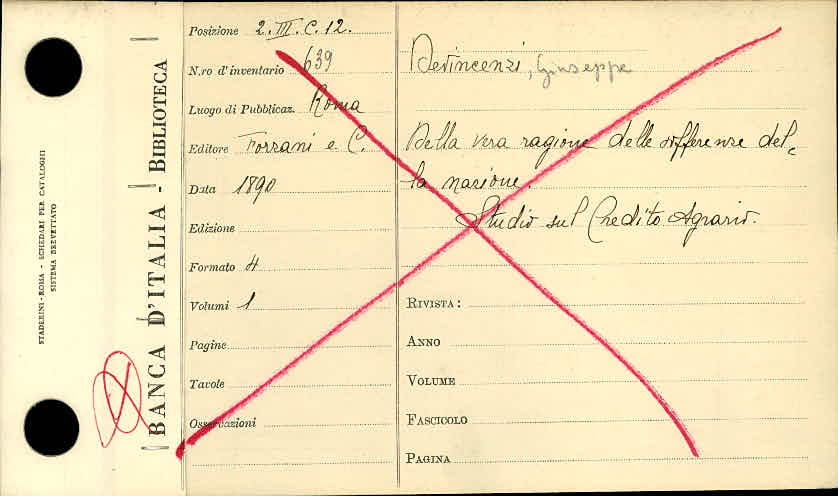 STADERINI - ROMA - SCHEDARI PER CATALOGHI
SISTEMA BREVETTATO
BANCA D'ITALIA - BIBLIOTECA
Posizione 2. III. C. 12.
N.ro d'inventario 639
Luogo di Pubblicaz. Roma
Editore Forzani e C.
Data 1890
Edizione
Formato 4
Volumi 1
Pagine
Tavole
Osservazioni
Devincenzi, Giuseppe
Della vera ragione delle sofferenze del-
la nazione.
Studio sul Credito Agrario.
RIVISTA:
ANNO
VOLUME
FASCICOLO
PAGINA